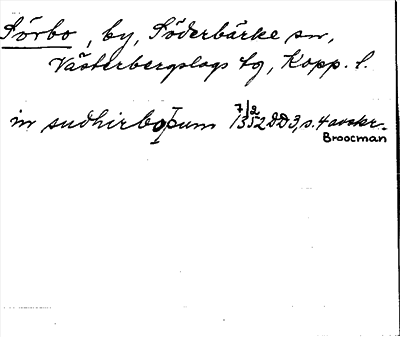 Sörbo, by, Söderbärke sn,
Västerbergslags tg, Kopp. l.
in sudhirboþum 7/2 1352 DD3, s. 4 avskr.
Broocman